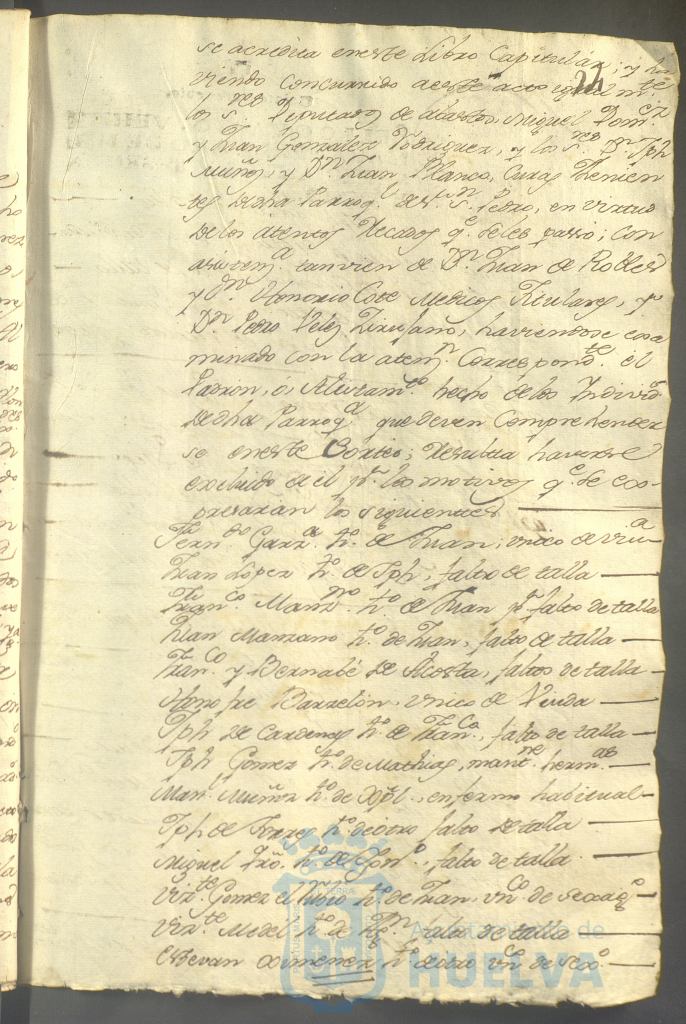 se acredita en este Libro Capitular; y ha
24
viendo concurrido a este acto
los S.res Diputados de abastos, Miguel Dom.
y Juan Gonzalez Rodriguez, y los S.res D.n Jph
Muñoz, y D.n Juan Blanco, Curas Thenien
tes de dha Parroq.l de S.n S.n Pedro, en virtud
de los atentos Recados q.e se les passó; con
asistem.a tanvien de D.n Juan de Robles
y D.n Honorio Cote Medicos Titulares, y
D.n Pedro Velez Zirujano; haviendose exa
minado con la atem.n Correspond.te el
Padron, ó, Alistam.to hecho de los Individ.s
de dha Parroq.a que deven Comprehender
se en este Sorteo; Resulta haverse
excluido de el p.r los motivos q.e se ex-
presarán los siguientes
Fern.do Garz.a h.o de Juan, unico de viu.a
Juan Lopez h.o de Jph, falto de talla
Fran.co Manz.no h.o de Juan p.r falto de talla
Juan Manzano h.o de Juan, falto de talla
Fran.co y Bernabé de Acosta, faltos de talla
Honofre Barrelon, unico de Viuda
Jph de Cardenas h.o de Fran.co, falto de talla
Jph Gomez h.o de Mathias, mant.ne herm.as
Man.l Muñoz h.o de Xptl., enfermo habitual
Jph de Torres h.o de otro falto de talla
Miguel h.o de falto de talla
Viz.te Gomez el h.o de Juan, un.co de sexag.o
Viz.te Medel h.o de falto de talla
Estevan Ximenez h.o de otro un.co de sex.o
Ayuntamiento de
HUELVA